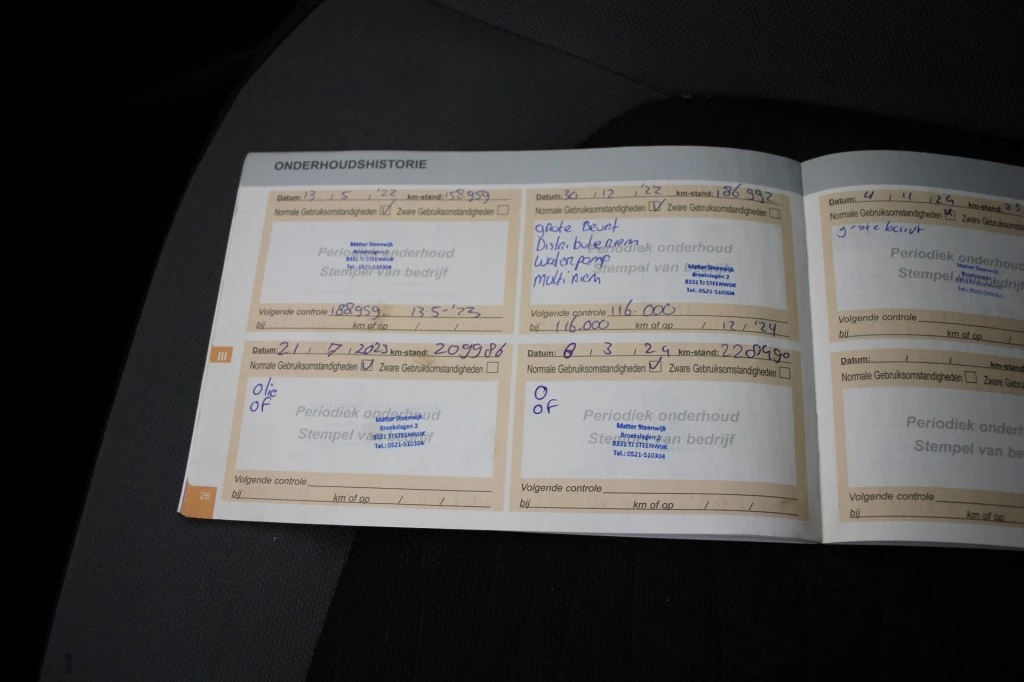 ONDERHOUDSHISTORIE
Datum: 13 , 5 , '22 km-stand: 158959
Normale Gebruiksomstandigheden Zware Gebruiksomstandigheden
Periodiek onderhoud
Stempel van bedrijf
Matter Steenwijk
Broekslagen 2
8331 TJ STEENWIJK
Tel.: 0521-510304
Volgende controle 188959 13-5-'23
bij km of op / /
Datum: 30 , 12 , '22 km-stand: 186992
Normale Gebruiksomstandigheden Zware Gebruiksomstandigheden
grote Beurt
Distributieriem
Waterpomp
Multiriem
Periodiek onderhoud
Stempel van bedrijf
Matter Steenwijk
Broekslagen 2
8331 TJ STEENWIJK
Tel.: 0521-510304
Volgende controle 116.000
bij 116.000 km of op / 12 / '24
III
Datum: 21 , 7 , 2023 km-stand: 209986
Normale Gebruiksomstandigheden Zware Gebruiksomstandigheden
Olie
OF
Periodiek onderhoud
Stempel van bedrijf
Matter Steenwijk
Broekslagen 2
8331 TJ STEENWIJK
Tel.: 0521-510304
Volgende controle
bij km of op / /
Datum: 3 , 24 km-stand: 228490
Normale Gebruiksomstandigheden Zware Gebruiksomstandigheden
O
OF
Periodiek onderhoud
Stempel van bedrijf
Matter Steenwijk
Broekslagen 2
8331 TJ STEENWIJK
Tel.: 0521-510304
Volgende controle
bij km of op / /
26
Datum: 4 , 11 , 24 km-stand: 25
Normale Gebruiksomstandigheden Zware
grote beurt
Periodiek onderh
Stempel van bedrijf
Matter Steenwijk
Volgende controle
bij km of op
Datum: / / km-stand
Normale Gebruiksomstandigheden Zware Ge
Periodiek onderh
Stempel van be
Volgende controle
bij km of op